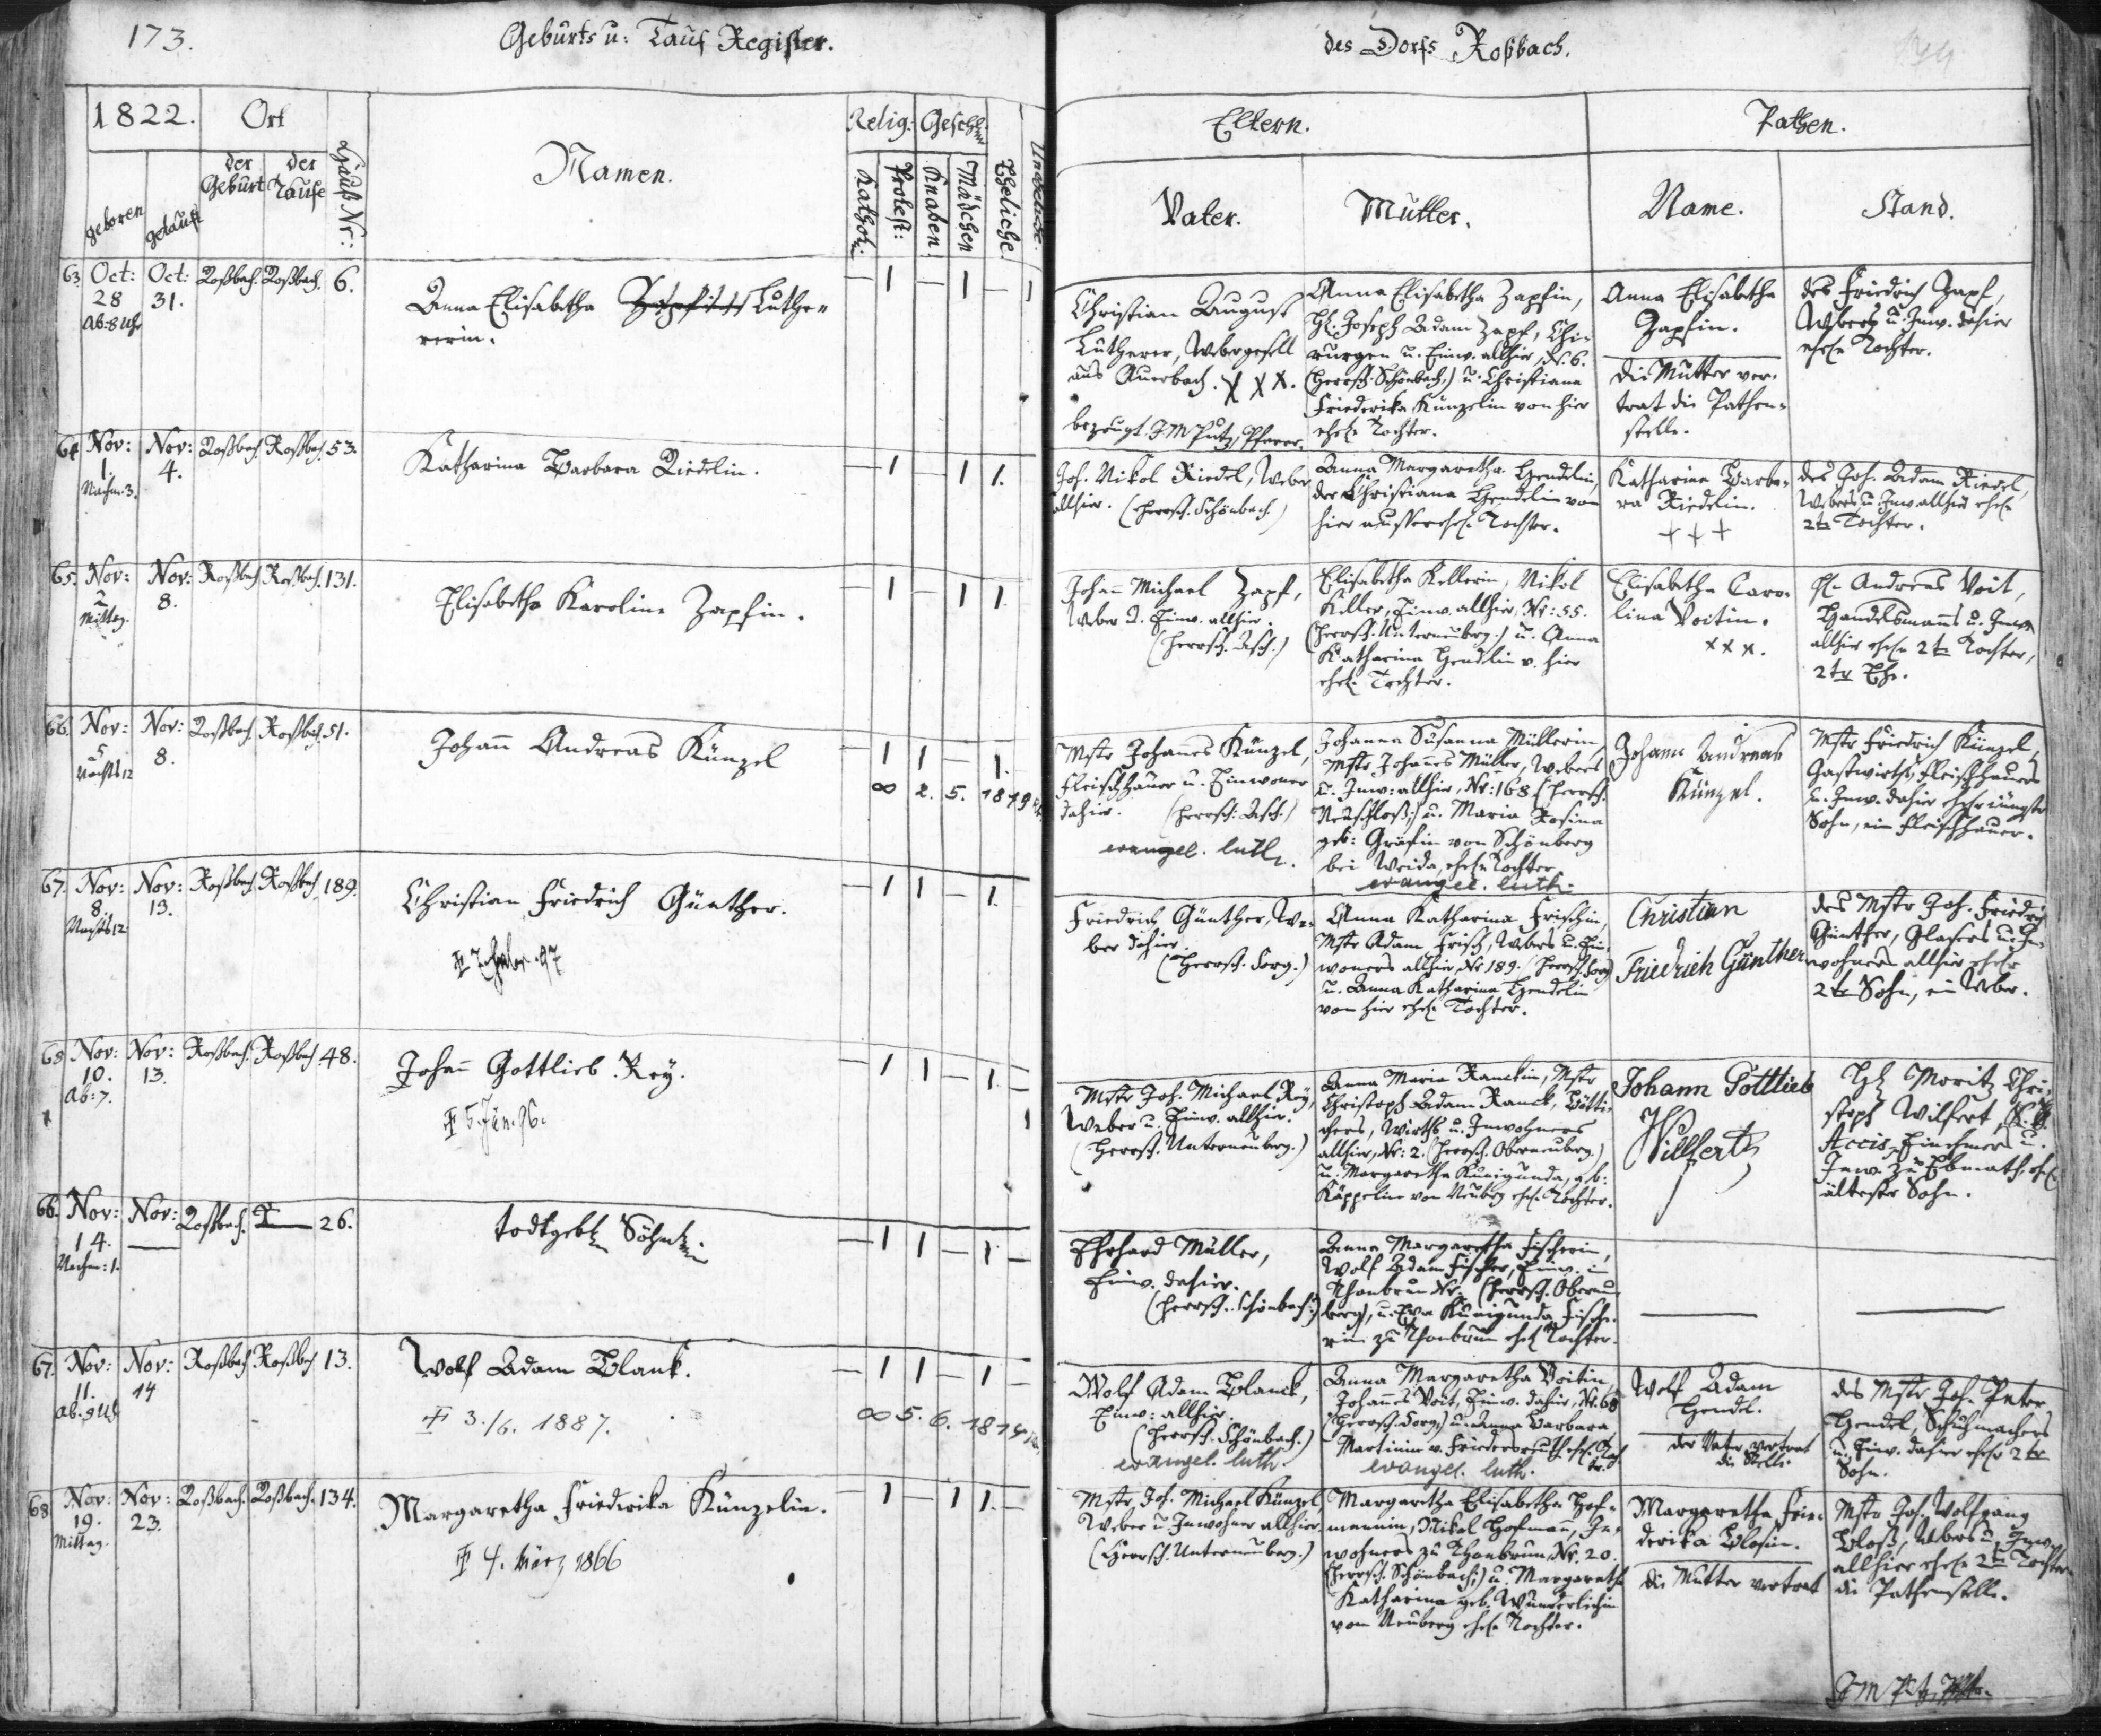 173.
Geburts u: Tauf Register.
des Dorfs Roßbach.
1822.
Ort
Relig:
Geschl:
geboren
getauft
der Geburt
der Taufe
Hauß Nr:
Namen.
Kathol:
Protest:
Knaben
Mädchen
Eheliche
Uneheliche.
Eltern.
Pathen.
Vater.
Mutter.
Name.
Stand.
63. Oct: Oct: Roßbach. Roßbach. 6.
28 31.
Ab: 8 Uhr
Anna Elisabetha Zapfin Luthe-
rerin.
1 1 1
Christian August
Lutherer, Webergesell
aus Auerbach. XXX.
bezeugt JM Putz, Pfarrer.
Anna Elisabetha Zapfin,
H: Joseph Adam Zapf, Chi-
rurgen u. Einw. allhier, N. 6.
(Herrsch. Schönbach.) u. Christiana
Friederika Künzelin von hier
ehel. Tochter.
Anna Elisabetha
Zapfin.
die Mutter ver-
trat die Pathen-
stelle.
des Friedrich Zapf,
Webers u. Inw. dahier
ehel. Tochter.
64 Nov: Nov: Roßbach. Roßbach. 53.
1. 4.
Nachm. 3.
Katharina Barbara Riedelin.
1 1 1.
Joh. Nikol Riedel, Weber
allhier. (Herrsch. Schönbach.)
Anna Margaretha Hendelin,
der Christiana Hendelin von
hier ausserehel. Tochter.
Katharina Barba-
ra Riedelin.
+++
des Joh. Adam Riedel,
Webers u. Inw. allhier ehel.
2te Tochter.
65. Nov: Nov: Roßbach Roßbach. 131.
2 8.
Mittag.
Elisabetha Karolina Zapfin.
1 1 1
Johann Michael Zapf,
Weber u. Einw. allhier.
(Herrsch. Asch.)
Elisabetha Kellerin, Nikol
Keller, Einw. allhier, Nr: 55.
(Herrsch. Unterneuberg.) u. Anna
Katharina Hendlin v. hier
ehel. Tochter.
Elisabetha Caro-
lina Voitin.
xxx.
H. Andreas Voit,
Handelsmanns u. Inw.
allhier ehel. 2te Tochter,
2ter Ehe.
66. Nov: Nov: Roßbach Roßbach 51.
5 8.
Nachts 12
Johann Andreas Künzel
1 1 1.
∞ 2. 5. 1849
Mstr Johannes Künzel,
Fleischhauer u. Einwoner
dahier. (Herrsch: Asch.)
evangel. luth.
Johanna Susanna Müllerin,
Mstr Johannes Müller, Webers
u. Inw: allhier, Nr: 168 (Herrsch.
Neuschloß,) u. Maria Rosina
geb: Gräfin von Schönberg
bei Weida, ehel. Tochter
evangel. luth.
Johann Andreas
Künzel.
Mstr Friedrich Künzel,
Gastwirths, Fleischhauers
u. Inw. dahier ehel. jüngste
Sohn, ein Fleischhauer.
67. Nov: Nov: Roßbach. Roßbach. 189.
8. 13.
Nachts 12
Christian Friedrich Günther.
1 1 1.
Friedrich Günther, We-
ber dahier.
(Herrsch. Sorg.)
Anna Katharina Frischin,
Mstr Adam Frisch, Webers u. Ein-
woners allhier, Nr 189. (Herrsch. Sorg)
u. Anna Katharina Hendelin
von hier ehel. Tochter.
Christian
Friedrich Günther
des Mstr Joh. Friedrich
Günther, Glasers u. In-
wohners allhier ehel.
2te Sohn, ein Weber.
68 Nov: Nov: Roßbach. Roßbach 48.
10. 13.
Ab: 7.
Johann Gottlieb Rey.
5. Jun. 96.
1 1 1
Mstr Joh. Michael Rey,
Weber u. Einw. allhier.
(Herrsch. Unterneuberg.)
Anna Maria Ranckin, Mstr
Christoph Adam Ranck, Bötti-
chers, Wirths u. Inwohners
allhier, Nr: 2. (Herrsch. Oberneuberg.)
u. Margaretha Kunigunda, geb.
Käppelin von Neuberg ehel. Tochter.
Johann Gottlieb
Willfert
H: Moritz Chri-
stoph Wilfert, K. K.
Accis-Einehmers u.
Inw. zu Ebmath ehel.
ältester Sohn.
66. Nov: Nov: Roßbach. 26.
14.
Nachm: 1.
todtgebl. Söhnlein
1 1 1
Ehrhard Müller,
Einw. dahier.
(Herrsch. Schönbach.)
Anna Margaretha Fischerin,
Wolf Adam Fischer, Einw. in
Thonbrun Nr. (Herrsch. Oberneu-
berg), u. Eva Kunigunda Fische-
rin zu Thonbrun ehel. Tochter.
67. Nov: Nov: Roßbach Roßbach 13.
11. 14
Ab. 9 Uhr
Wolf Adam Blank.
3./6. 1887.
1 1 1
∞ 5. 6. 1849
Wolf Adam Blanck,
Einw: allhier.
(Herrsch. Schönbach.)
evangel. luth.
Anna Margaretha Voitin,
Johannes Voit, Einw. dahier, Nr. 68
(Herrsch. Sorg,) u. Anna Barbara
Martinin v. Friedersreuth ehel. Toch-
ter.
evangel. luth.
Wolf Adam
Hendel.
der Vater vertrat
die Stelle.
des Mstr Joh. Peter
Hendel, Schuhmachers
u. Einw. dahier ehel. 2te
Sohn.
68 Nov: Nov: Roßbach. Roßbach. 134.
19. 23.
Mittag.
Margaretha Friederika Künzelin.
4. März 1866
1 1 1.
Mstr Joh. Michael Künzel
Weber u. Inwohner allhier.
(Herrsch. Unterneuberg.)
Margaretha Elisabetha Hof-
mannin, Nikol Hofmann, In-
wohners zu Thonbrun, Nr. 20.
(Herrsch. Schönbach,) u. Margaretha
Katharina geb. Wunderlichin
von Neuberg ehel. Tochter.
Margaretha Frie-
derika Blosin.
die Mutter vertrat
Mstr Joh. Wolfgang
Bloß, Webers u. Inw.
allhier ehel. 2te Tochter
die Pathenstelle.